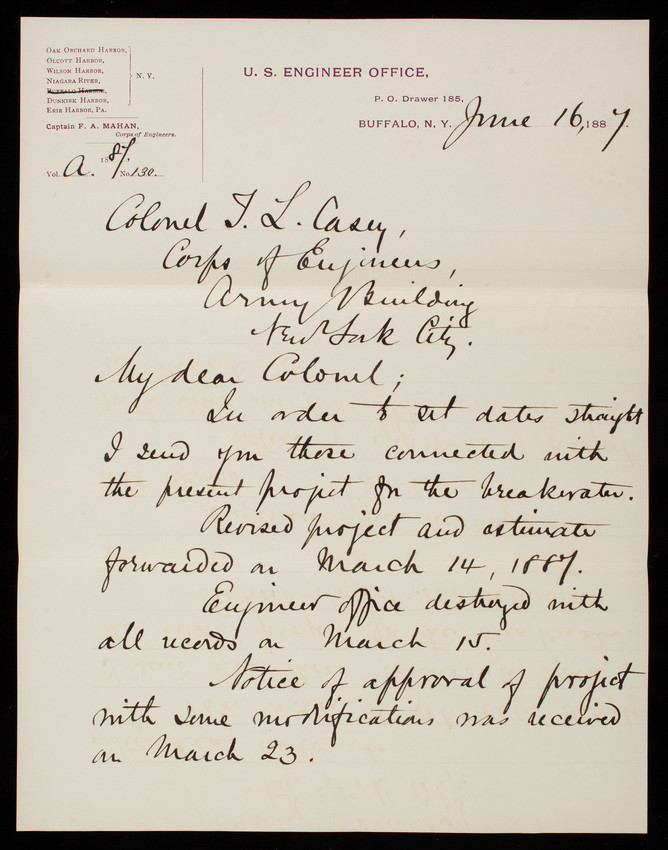 Oak Orchard Harbor,
Olcott Harbor,
Wilson Harbor,
Niagara River,
Buffalo Harbor,
Dunkirk Harbor,
Erie Harbor, Pa.
N. Y.
Captain F. A. MAHAN,
Corps of Engineers.
Vol. A. 1887, No. 130.
U. S. ENGINEER OFFICE,
P. O. Drawer 185,
BUFFALO, N. Y. June 16, 1887.
Colonel T. L. Casey,
Corps of Engineers,
Army Building
New York City.
My dear Colonel;
In order to set dates straight
I send you those connected with
the present project for the breakwater.
Revised project and estimate
forwarded on March 14, 1887.
Engineer office destroyed with
all records on March 15.
Notice of approval of project
with some modifications was received
on March 23.